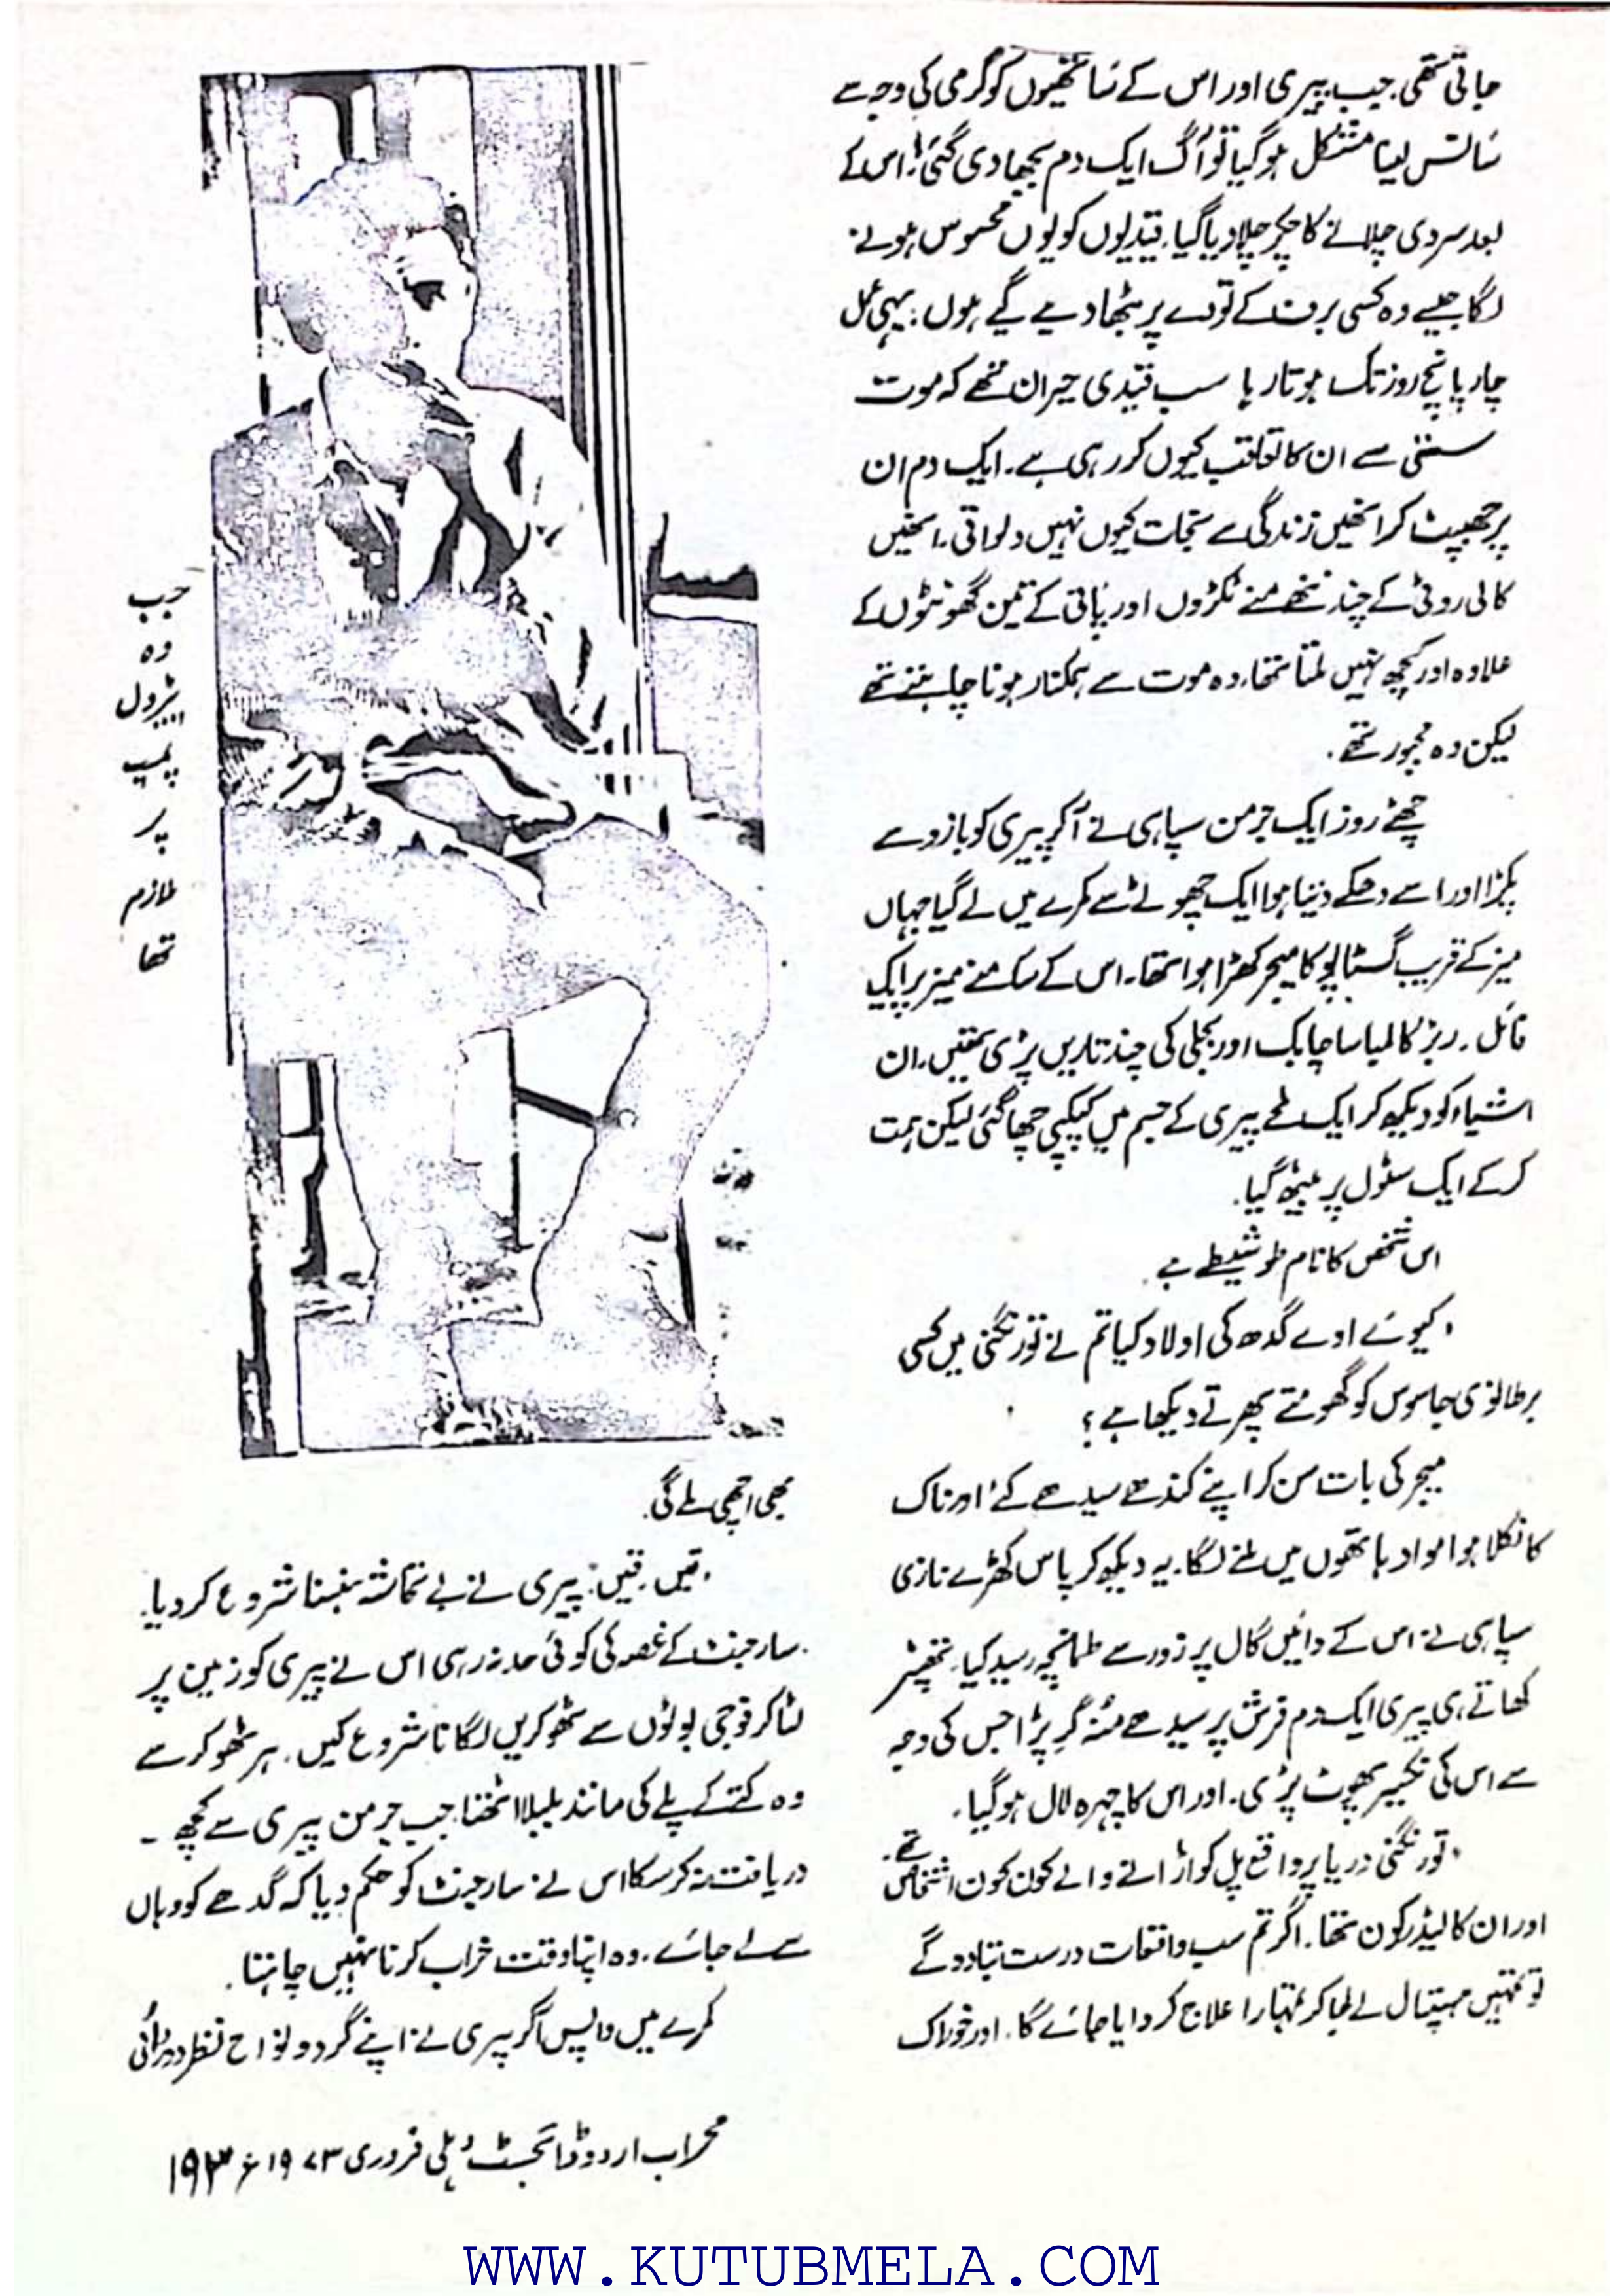 جاتی تھی. جب پیری اور اس کے ساتھیوں کو گرمی کی وجہ سے
سانس لینا مشکل ہو گیا تو آگ ایک دم بجھا دی گئی. اس کے
بعد سردی چلانے کا چکر چلا دیا گیا. قیدیوں کو یوں محسوس ہونے
لگا جیسے وہ کسی برف کے تودے پر بٹھا دیے گیے ہوں. یہی عمل
چار پانچ روز تک ہوتا رہا سب قیدی حیران تھے کہ موت
سستی سے ان کا تعاقب کیوں کر رہی ہے. ایک دم ان
پر جھپٹ کر انھیں زندگی سے نجات کیوں نہیں دلواتی. انھیں
کالی روٹی کے چند ننھے منے ٹکڑوں اور پانی کے تین گھونٹوں کے
علاوہ اور کچھ نہیں ملتا تھا. وہ موت سے ہمکنار ہونا چاہتے تھے
لیکن وہ مجبور تھے.
چھٹے روز ایک جرمن سپاہی نے آکر پیری کو بازو سے
پکڑا اور اسے دھکے دیتا ہوا ایک چھوٹے سے کمرے میں لے گیا جہاں
میز کے قریب گسٹاپو کا میجر کھڑا ہوا تھا. اس کے سامنے میز پر ایک
فائل. ربڑ کا لمبا سا چابک اور بجلی کی چند تاریں پڑی تھیں. ان
اشیاء کو دیکھ کر ایک لمحے پیری کے جسم میں کپکپی چھا گئی لیکن ہمت
کر کے ایک سٹول پر بیٹھ گیا.
اس شخص کا نام طوشیطے ہے.
، کیوں اوے گدھ کی اولاد کیا تم نے تورنگنی میں کسی
برطانوی جاسوس کو گھومتے پھرتے دیکھا ہے؟
میجر کی بات سن کر اپنے کندھے سیدھے کئے اور ناک
کا نکلا ہوا مواد ہاتھوں میں ملنے لگا. یہ دیکھ کر پاس کھڑے نازی
سپاہی نے اس کے دائیں گال پر زور سے طمانچہ رسید کیا. تھپڑ
کھاتے ہی پیری ایک دم فرش پر سیدھے منہ گر پڑا جس کی وجہ
سے اس کی نکسیر پھوٹ پڑی. اور اس کا چہرہ لال ہو گیا.
، تورنگنی دریا پر واقع پل کو اڑانے والے کون کون اشخاص تھے.
اور ان کا لیڈر کون تھا. اگر تم سب واقعات درست بتا دو گے
تو تمہیں ہسپتال لے جا کر تمہارا علاج کروایا جائے گا. اور خوراک
جب
وہ
پٹرول
پمپ
پر
ملازم
تھا
بھی اچھی ملے گی.
، قیں. قیں، پیری نے بے تحاشہ ہنسنا شروع کر دیا.
سارجنٹ کے غصہ کی کوئی حد نہ رہی اس نے پیری کو زمین پر
لٹا کر فوجی بوٹوں سے ٹھوکریں لگانا شروع کیں. ہر ٹھوکر سے
وہ کتے کے پلے کی مانند بلبلا اٹھتا. جب جرمن پیری سے کچھ -
دریافت نہ کر سکا اس نے سارجنٹ کو حکم دیا کہ گدھے کو وہاں
سے لے جائے. وہ اپنا وقت خراب کرنا نہیں چاہتا.
کمرے میں واپس آ کر پیری نے اپنے گرد و نواح نظر دوڑائی
محراب اردو ڈائجسٹ دہلی فروری ۱۹۷۳ء ۱۹۳
WWW.KUTUBMELA.COM